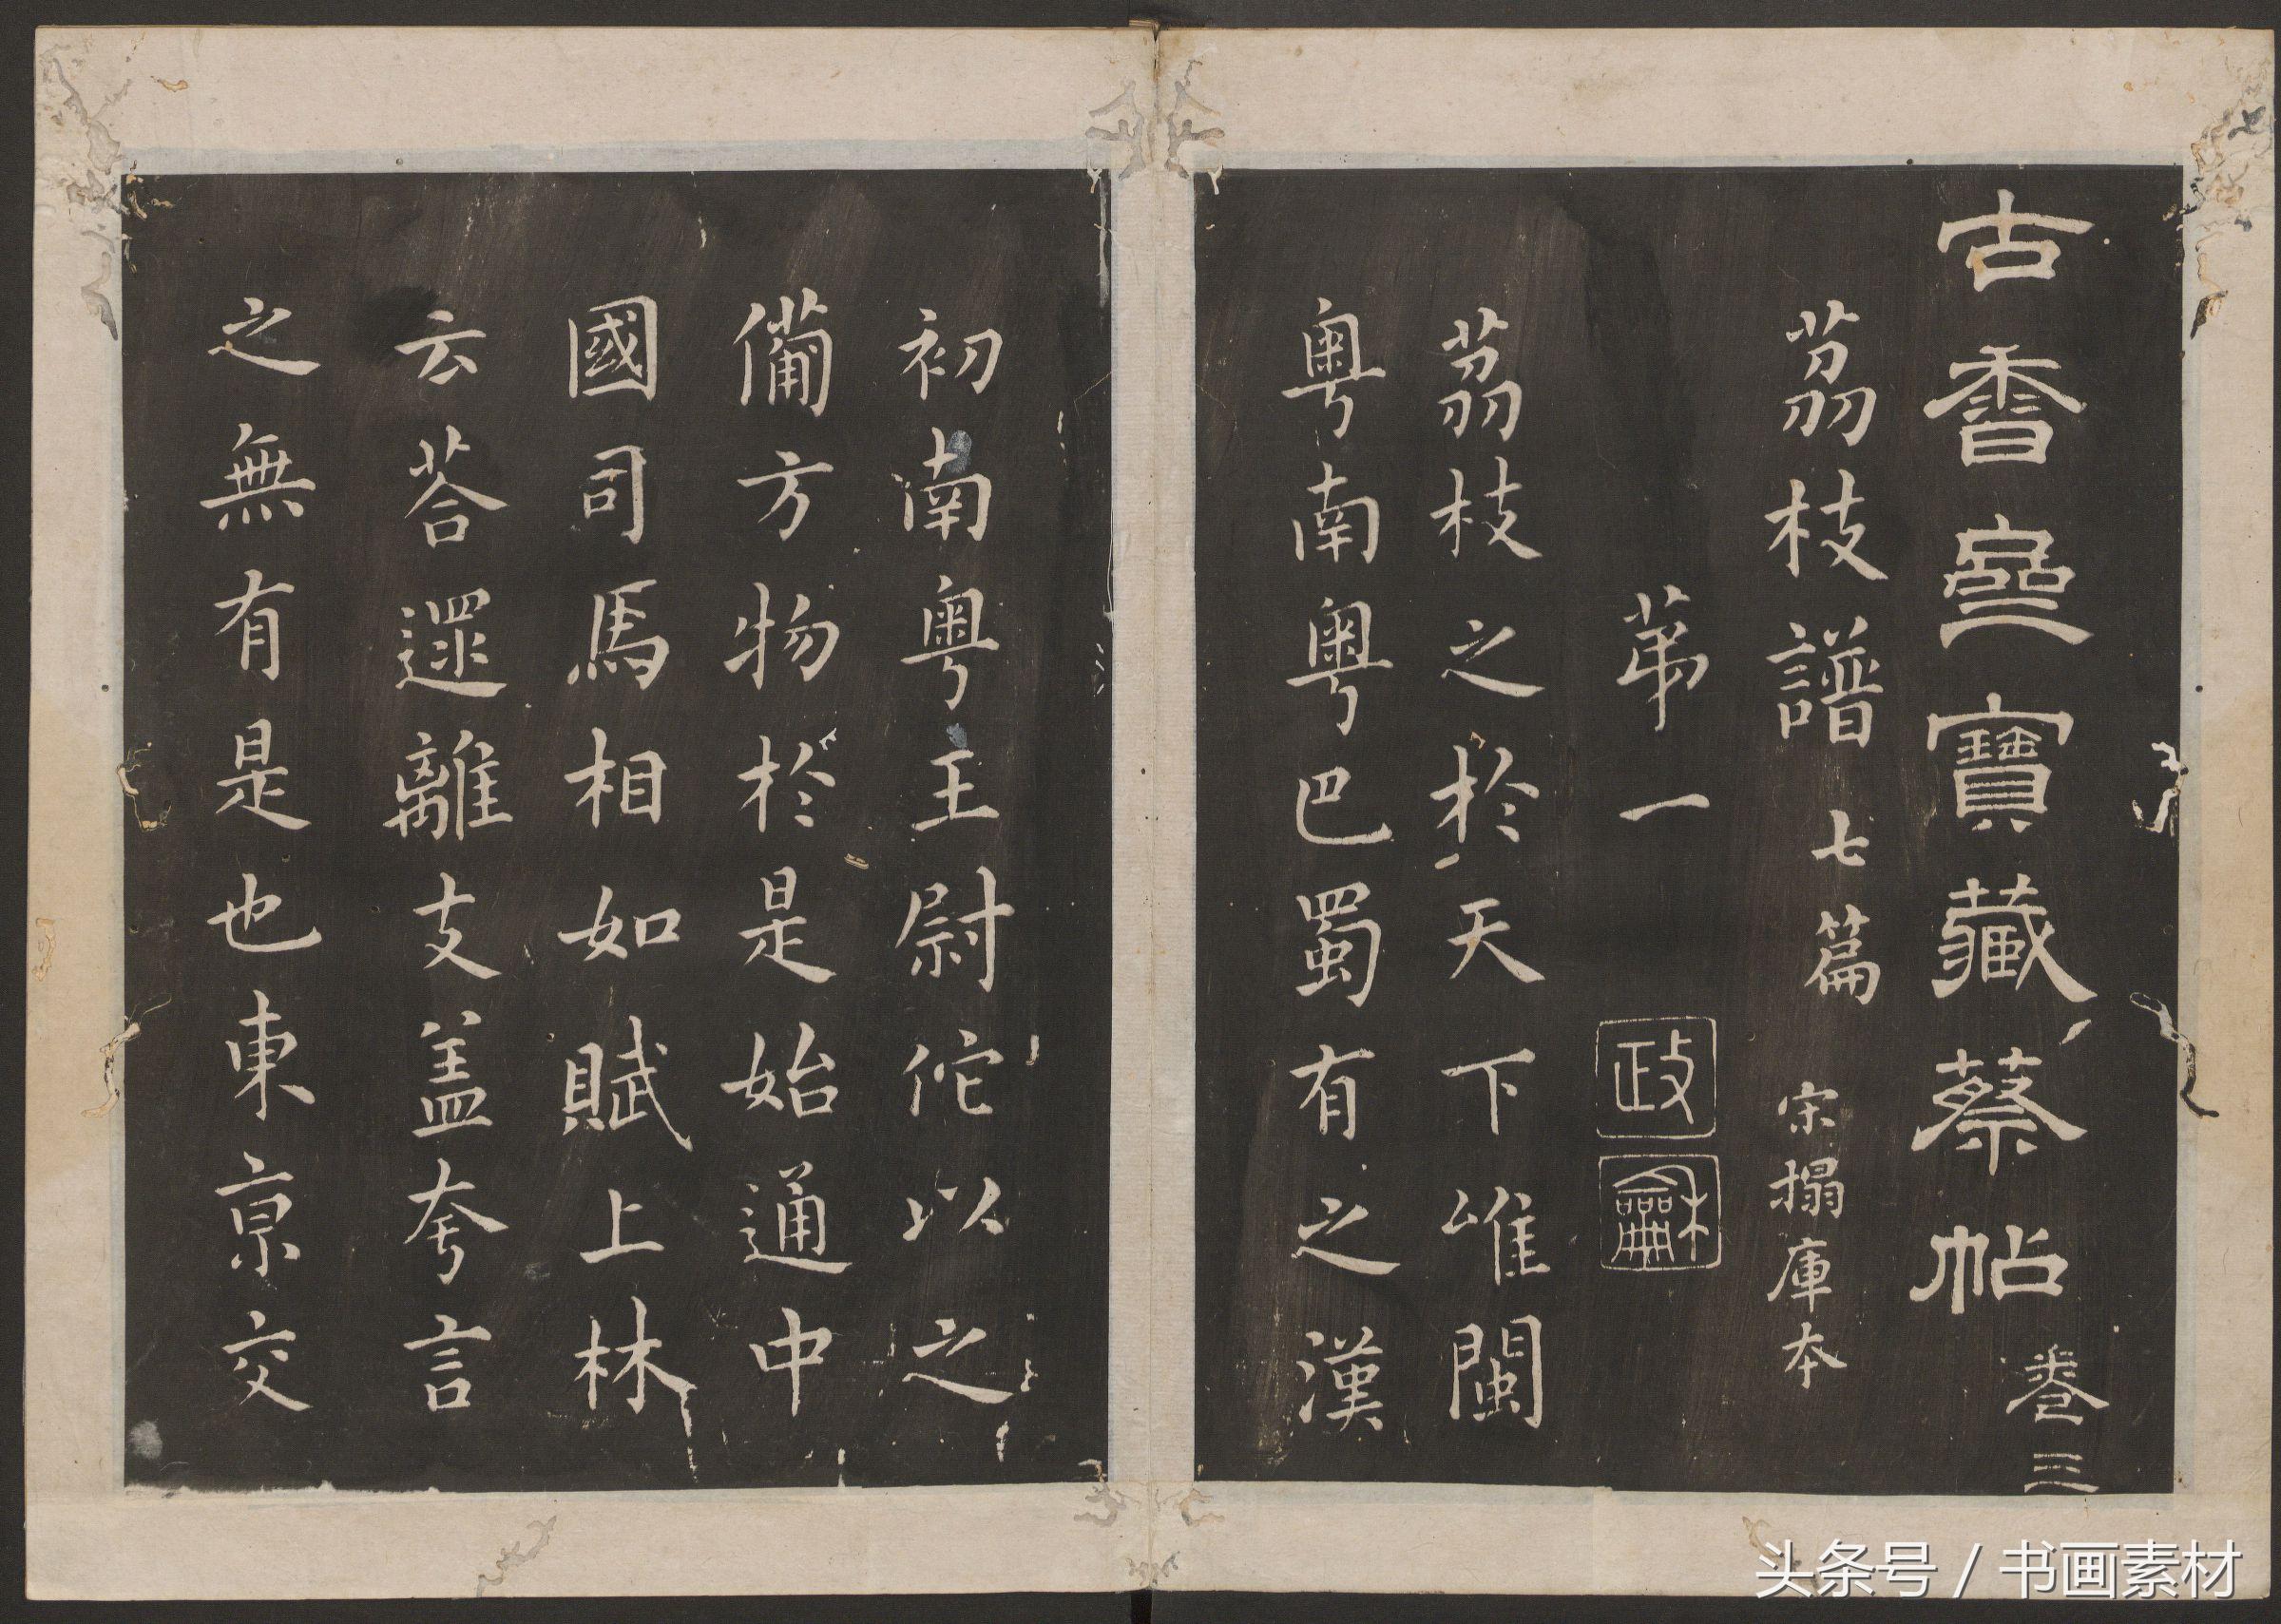 古香齋寶藏蔡帖 卷三
茘枝譜 七篇 宋搨庫本
苐一
政
龢
茘枝之於天下唯閩
粵南粵巴蜀有之漢
初南粵王尉佗以之
備方物於是始通中
國司馬相如賦上林
云荅遝離支盖夸言
之無有是也東京交
头条号 / 书画素材